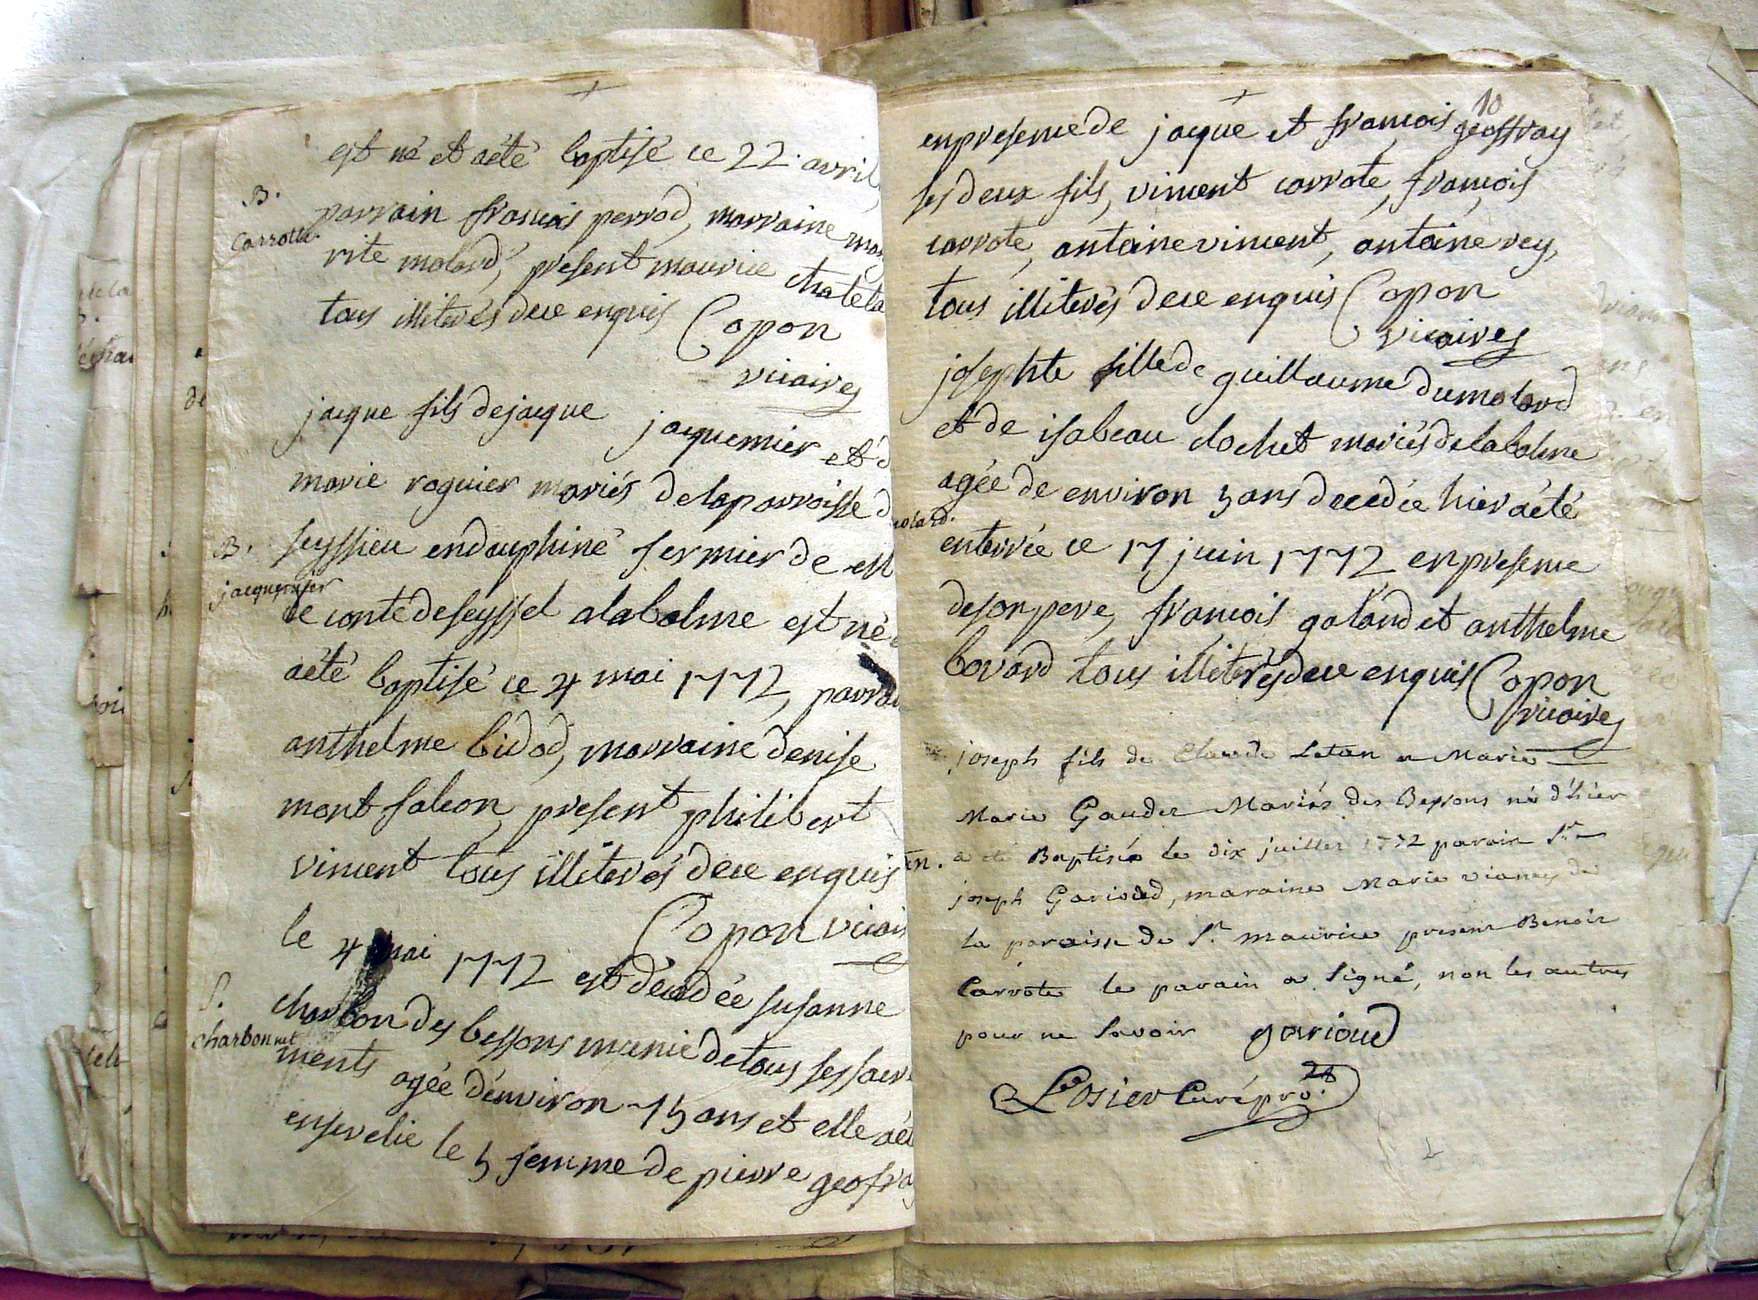 est né et aété baptisé ce 22 avril
B.
Carrotte.
parrain francois perrod, marraine mar
rite molard, present maurice chatela
tous illiterés dece enquis Copon
vicaires
jacque fils dejacque jacquemier et d
marie roguier mariés delaparroisse d
B.
jacquemier
seyssieu endauphiné fermier de
le conte deseyssel alabalme est né
aété baptisé ce 4 mai 1772, parrai
anthelme bidod, marraine denise
montfalcon, present philibert
vincent tous illiterés dece enquis
Copon vicair
le 4 mai 1772 est décedée susanne
S.
charbonnet
charbon des bessons munie detous ses sacre
ments agée d'environ 75 ans et elle aét
ensevelie le 5 femme de pierre geofra
10
enpresence de jacque et francois geoffray
ses deux fils, vincent carrote, francois
carrote, antoine vincent, antoine rey,
tous illiterés dece enquis Copon
vicaires
josephte fille de guillaume dumolard
et de isabeau clochet mariés delabalme
agée de environ 5 ans decedée hier aété
olard.
enterrée ce 17 juin 1772 enpresence
desonpere, francois galand et anthelme
bovard tous illiterés dece enquis Copon
vicaires
joseph fils de Claude Letan et Marie
Marie Gaudet Mariés des Bessons né d'hier
en.
a été Baptisée le dix juillet 1772 parain Sr
joseph Garioud, maraine Marie vianey de
la paroisse de St maurice present Benoit
Carrote le parain a signé, non les autres
pour ne savoir garioud
Losier Curé